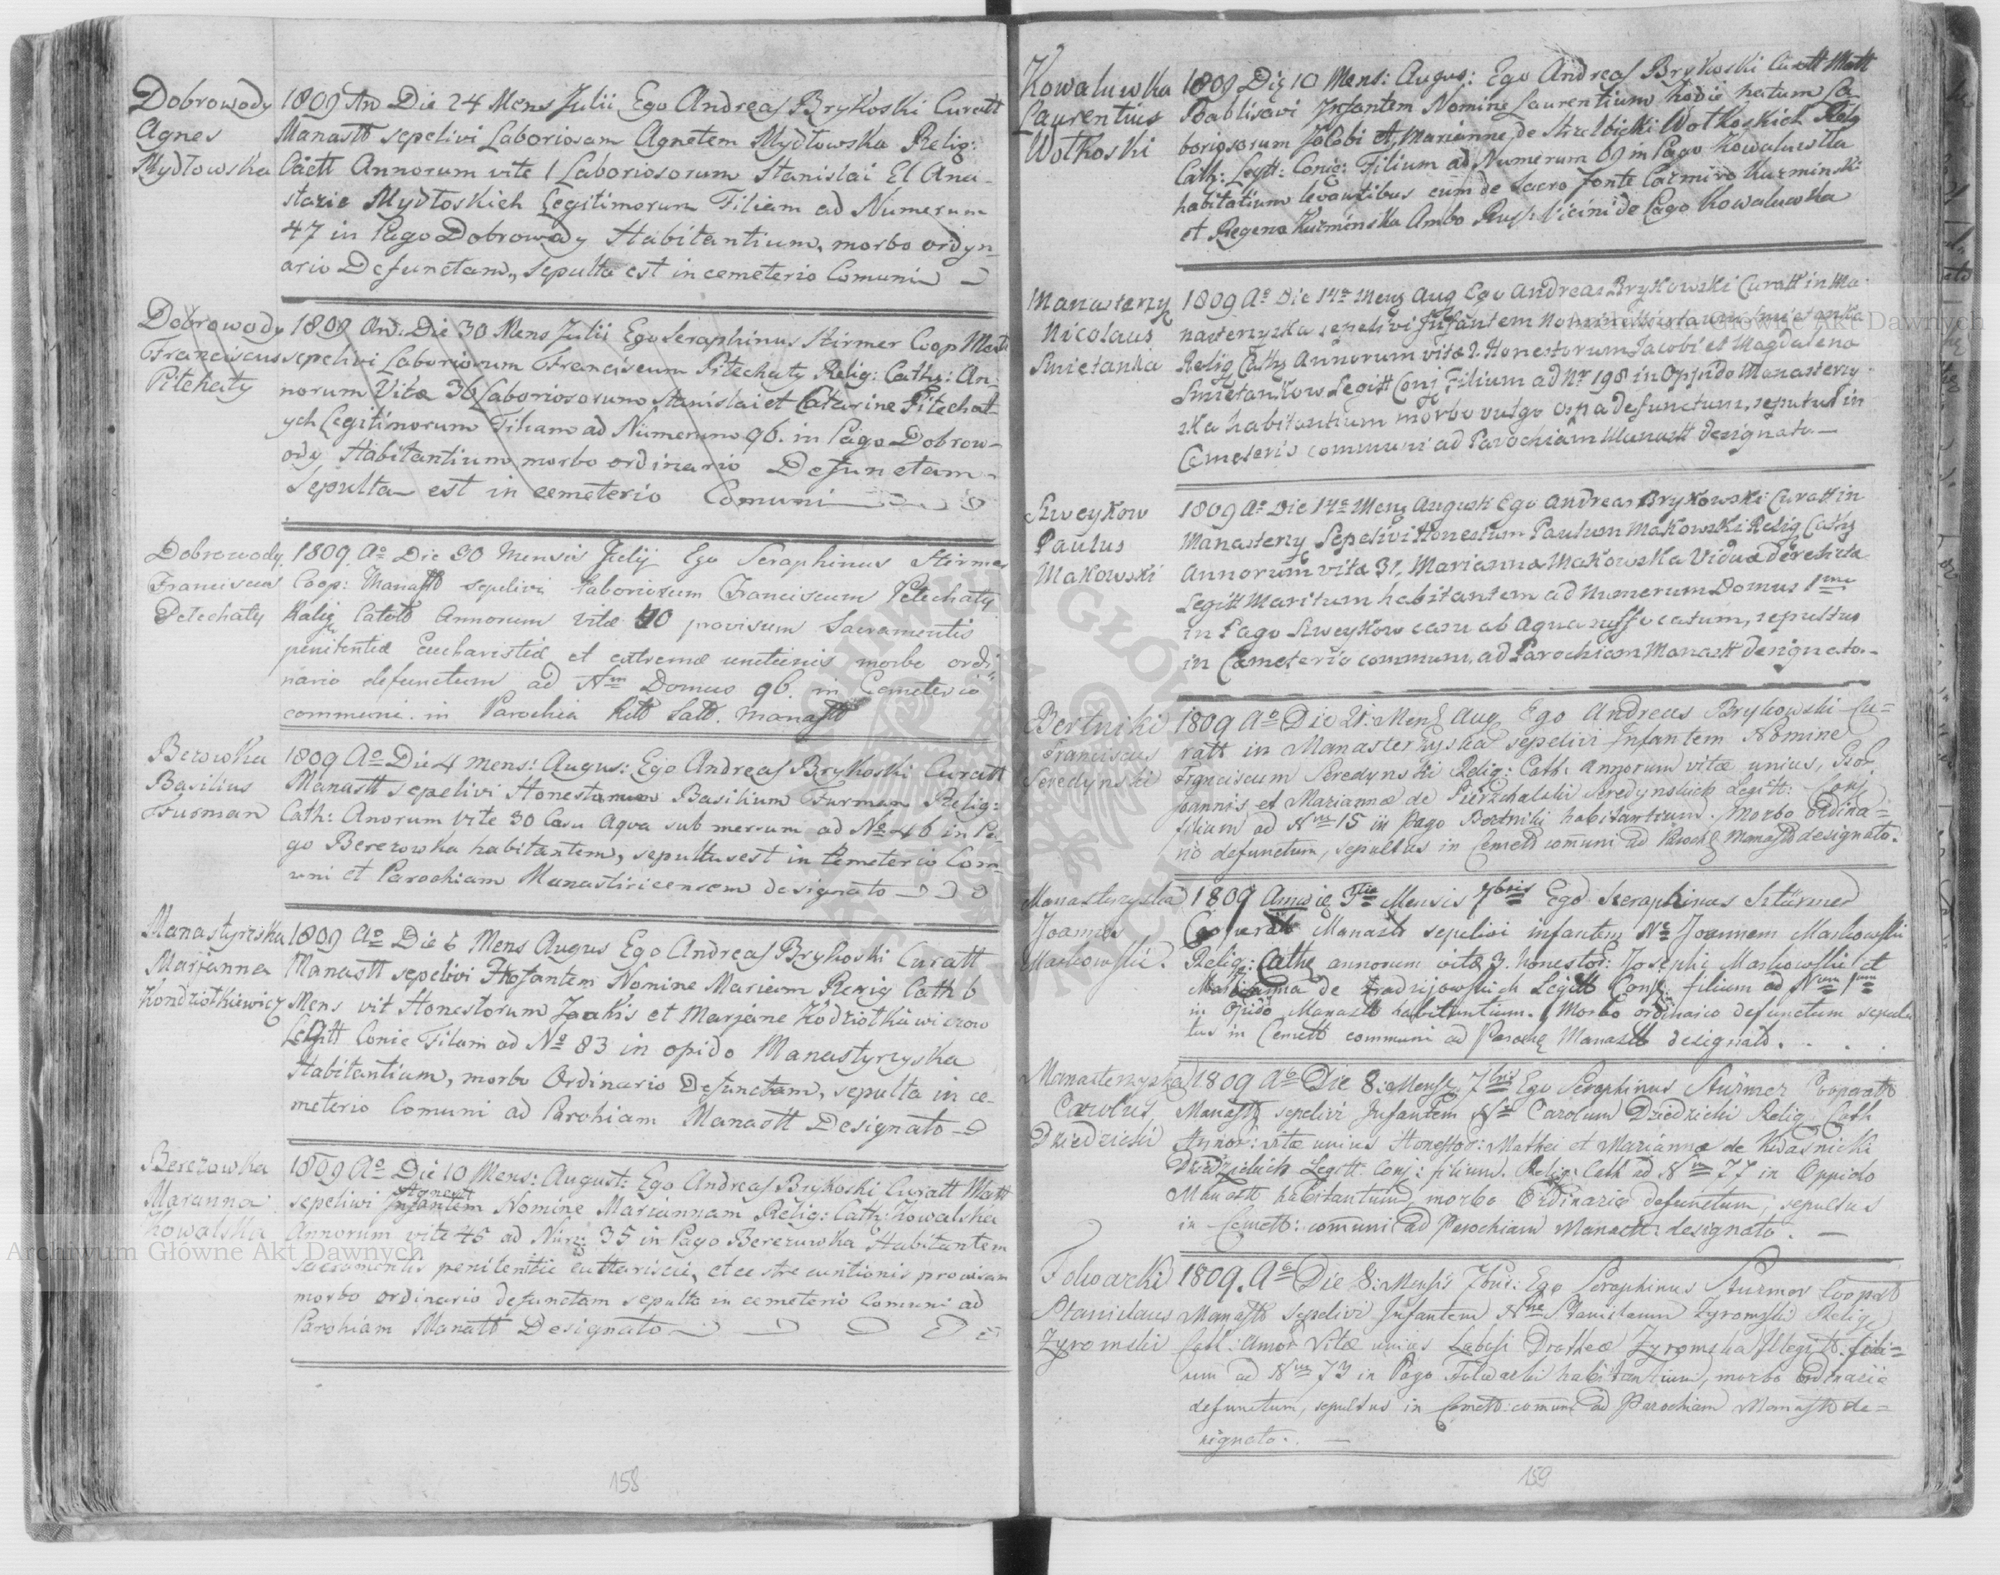 Dobrowody
Agnes
Mydłowska
1809 An Die 24 Mens Julii Ego Andreas Brykoski Curatt
Manastt sepelivi Laboriosam Agnetem Mydłowska Relig:
Catt Annorum vite 1 Laboriosorum Stanislai Et Ana-
stazie Mydłoskich Legitimorum Filiam ad Numerum
47 in Pago Dobrowody Habitantium, morbo ordyn-
ario Defunctam, sepulta est in cemeterio Comuni
Dobrowody
Franciscus
Pitehaty
1809 And: Die 30 Mens Julii Ego Seraphinus Stirmer Coop Mast
sepelivi Laboriorum Franciscum Pitechaty Relig: Cath: An-
norum Vite 36 Laboriosorum Stanislai et Catarine Pitechat-
ych Legitimorum Filiam ad Numerum 96. in Pago Dobrow-
ody Habitantium morbo ordinario Defunctam-
Sepulta est in cemeterio Comuni
Dobrowody
Franciscus
Petechaty
1809. Ao Die 30 Mensis Julij Ego Seraphinus Stirmer
Coop: Manastt sepelivi Laboriosum Franciscum Petechaty
Relig Catott Annorum vitæ 40 provisum Sacramentis
penitentiæ Eucharistiæ et extremæ unctionis morbo ordi
nario defunctum ad Nm Domus 96. in Cemeterio
communi in Parochia Ritt Latt. Manastt
Berowka
Basilius
Furman
1809 Ao Die 4 mens: Augus: Ego Andreas Brykoski Curatt
Manastt sepelivi Honestum Basilium Furman Relig:
Cath: Anorum vite 30 Casu Aqva submersum ad No 46 in Pa
go Berezowka habitantem, sepultus est in Cemeterio Com-
uni et Parochiam Manastiricensem designato
Manastyrzska
Marjanna
Kondziołkiewicz
1809 Ao Die 6 Mens Augus Ego Andreas Brykoski Curatt
Manastt sepelivi Infantem Nomine Mariam Relig Cath 6
Mens vit Honestorum et Marjane Kodziołkiewiczow
Legitt Conie Filam ad No 83 in opido Manastyrzyska
Habitantium, morbo Ordinario Defunctam, sepulta in ce-
meterio Comuni ad Parohiam Manastt Designato
Berezowka
Maranna
Kowalska
1809 Ao Die 10 Mens: August: Ego Andreas Brykoski Curatt Matt
sepeliwi Infantem Nomine Mariannam Relig: Cath: Kowalska
Annorum vite 45 ad Num: 35 in Pago Berezuwka Habitantem
sacramentis penitentie euttariscie, et ce stre cuntionis prowisam
morbo ordinario defunctam sepulta in cemeterio Comuni ad
Parohiam Manatt Designato
158
Kowaluwka
Laurentius
Wołkoski
1809 Die 10 Mens: Augus: Ego Andreas Brykoski Curatt Matt
Babtisavi Infantem Nomine Laurentium hodie natum La-
boriosorum Jolobi et, Marianne de Strzelbicki Wołkoskich Relg
Cath: Legtt: Conig: Filium ad Numerum 69 in Pago Kowaluwka
habitatium levantibus eum de Sacro fonte Caźmiro Kuzminski
et Regena Kuzminska Ambo Rusj: Vicini de Pago Kowaluwka
Manasterzy
Nicolaus
Smietanka
1809 Ao Die 14o Mens Aug Ego Andreas Brykowski Curatt in Ma-
nasterzyska sepelivi Infantem Nomine Nicolaum Smietanka
Relig Cath Annorum vitæ 2 Honestorum Jacobi et Magdalena
Smietankow Legitt Conj Filium ad Nr 198 in Oppido Manasterzy-
ska habitantium morbo vulgo ospa defunctum, seputus in
Cemeteris communi ad Parochiam Manastt designato-
Szweykow
Paulus
Makowski
1809 Ao Die 14o Mens Augusti Ego Andreas Brykowski Curatt in
Manasterzy Sepelivi Honestum Paulum Makowski Relig Cath
Annorum vitæ 31, Marianna Makowska Vidua derelicta
Legitt Maritum habitantem ad Numerum Domus 1me
in Pago Szweykow casu ab Aqua suffocatum, sepultus
in Cæmeterio communi, ad Parochiam Manastt designato-
Bertniki
Franciscus
Seredynski
1809 Ao Die 21: Mens Aug Ego Andreas Brykowski Cu-
ratt in Manasterzyska sepelivi Infantem Nomine
Franciscum Seredynski Relig: Cath: Annorum vitæ unius,
Joannis et Mariannæ de Pierzchalski Seredynskich Legitt: Conj
filium ad Nm 15 in Pago Bertniki habitantium. Morbo Ordina-
rio defunctum, sepultus in Cemett comuni ad Paroch Manastt designato.
Manasterzyska
Joannes
Markowski.
1809 Anno Die 7ma Mensis 7bris Ego Seraphinus Stürmer
Cooperatt Manastt sepelivi infantem Ne Joannem Markowski
Relig: Cathe annorum vitæ 3. honestor: Josephi Markowski et
Marianna de Legitt Conj: filium ad Num 1mm
in Opido Manastt habitantium. Morbo ordinario defunctum sepul
tus in Cemett communi ad Paroche Manastt designatt. . . .
Manasterzyska
Carolus
Dziedzicki
1809 Ao Die 8: Mensis 7bris Ego Seraphinus Stürmer Cooperatt
Manastt sepelivi Infantem Nm Carolum Dziedzicki Relig Cath
Annor: vitæ unius Honestor: Mathei et Mariannæ de Kwasnicki
Dziedzickich Legitt: Conj: filium. Relig: Cath ad Nm 77 in Oppido
Manastt habitantium, morbo Ordinario defunctum, sepultus
in Cemett: comuni ad Parochiam Manastt: designato. —
Folwarki
Stanislaus
Zyromski
1809. Ao Die 8: Mensis 7bris: Ego Seraphinus Sturmer Cooperatt
Manastt sepelivi Infantem Nne Stanislaum Zyromski Relig
Cath: Annor Vitæ unius Labosi Dorotheæ Zyromska Illegitt. fili-
um ad Nm 73 in Pago Folwarki habitantium, morbo Ordinario
defunctum, sepultus in Cemett: comuni ad Parochiam Manastt de=
signato. —
159
Archiwum Główne Akt Dawnych
Archiwum Główne Akt Dawnych